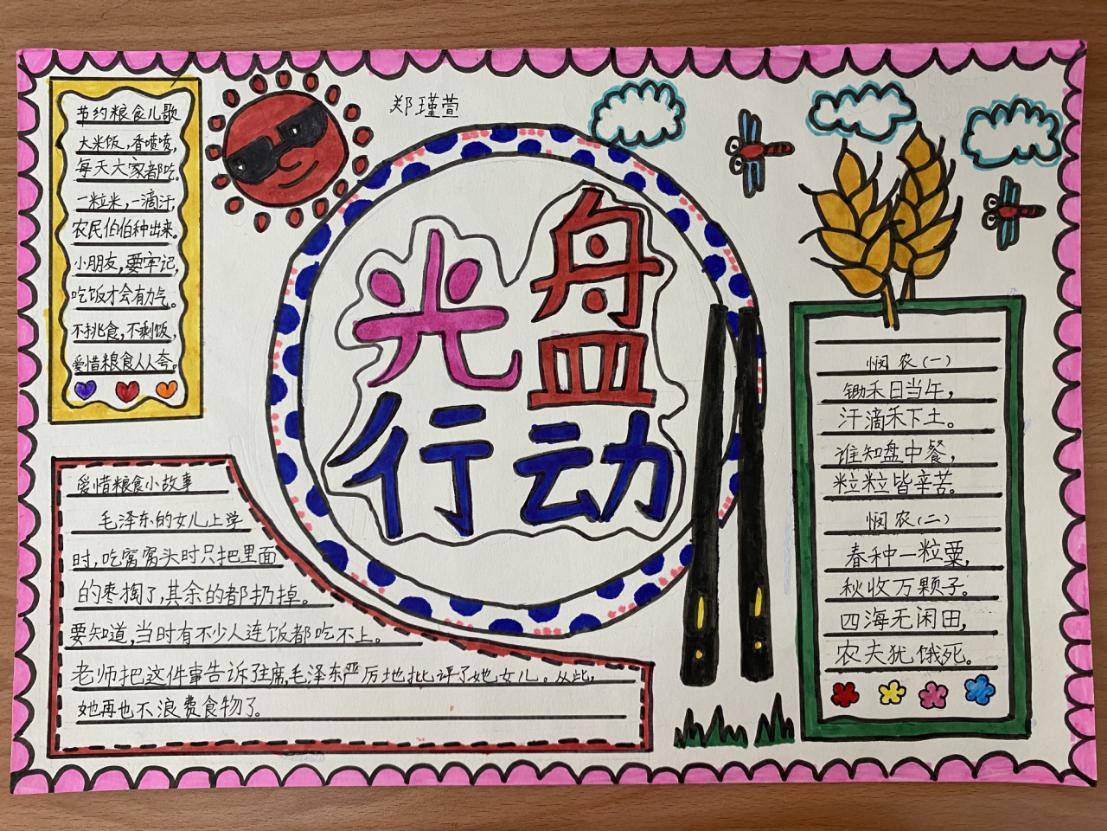 节约粮食儿歌
大米饭，香喷喷，
每天大家都吃。
一粒米，一滴汗，
农民伯伯种出来。
小朋友，要牢记，
吃饭才会有力气。
不挑食，不剩饭，
爱惜粮食人人夸。
郑瑾萱
光盘
行动
爱惜粮食小故事
毛泽东的女儿上学
时，吃窝窝头时只把里面
的枣掏了，其余的都扔掉。
要知道，当时有不少人连饭都吃不上。
老师把这件事告诉主席，毛泽东严厉地批评了她女儿。从此，
她再也不浪费食物了。
悯农（一）
锄禾日当午，
汗滴禾下土。
谁知盘中餐，
粒粒皆辛苦。
悯农（二）
春种一粒粟，
秋收万颗子。
四海无闲田，
农夫犹饿死。